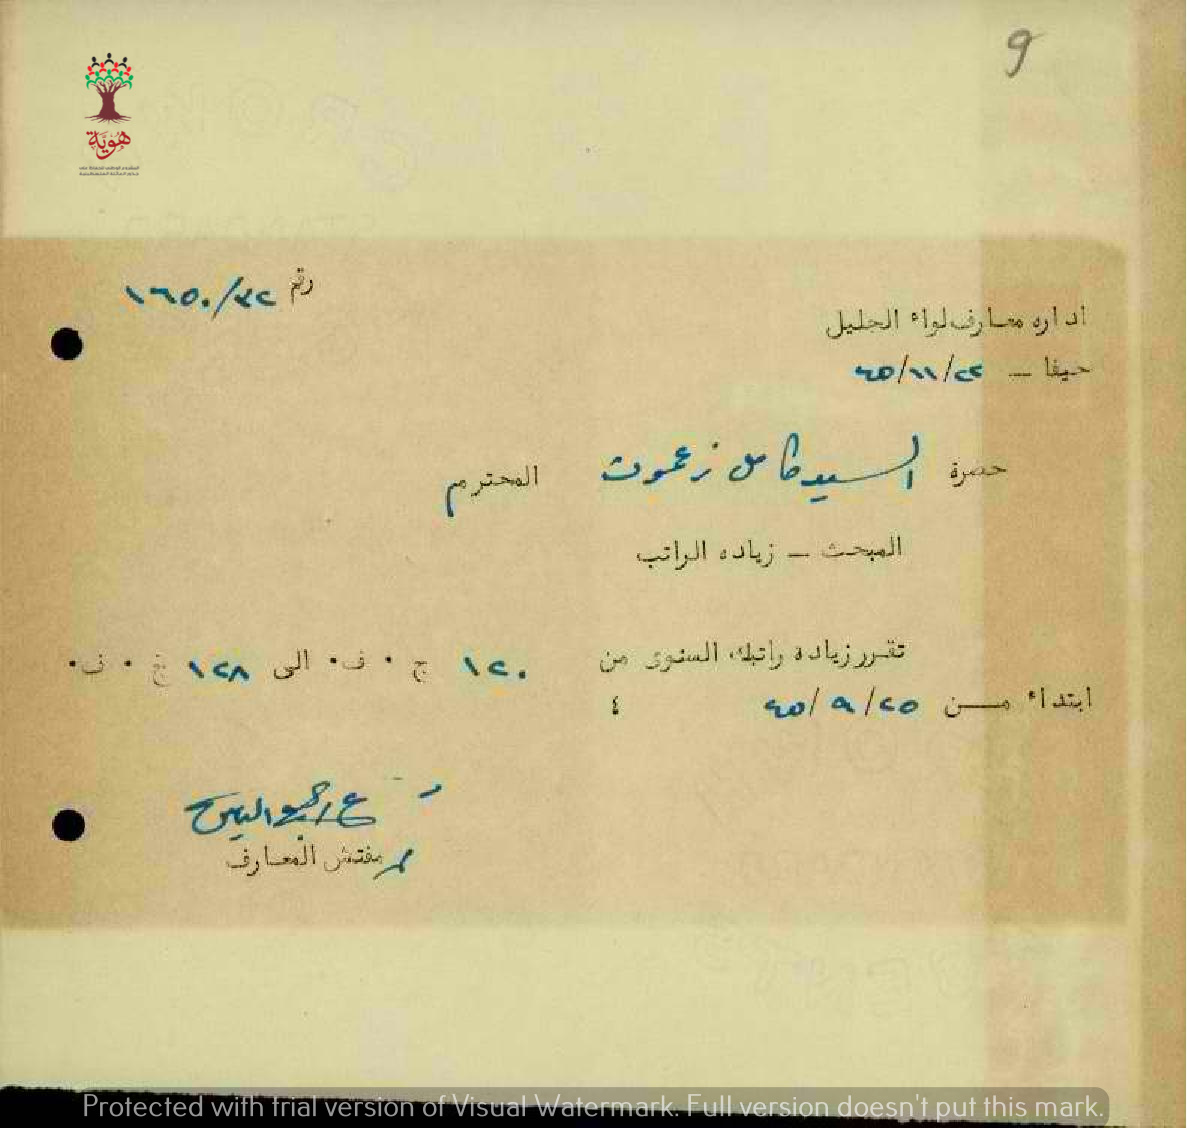 9
هوية
رقم ١٦٥٠/٣٢
اداره معارف لواء الجليل
حيفا – ٤٥/١١/٢٢
حضرة السيد كامل زعموت المحترم
المبحث – زياده الراتب
تقرر زيادة راتبك السنوى من ١٢٠ ج ٠ ف٠ الى ١٢٨ ج ٠ ف٠
ابتداء من ٤٥/٩/٢٥ ٤
مفتش المعارف
Protected with trial version of Visual Watermark. Full version doesn't put this mark.